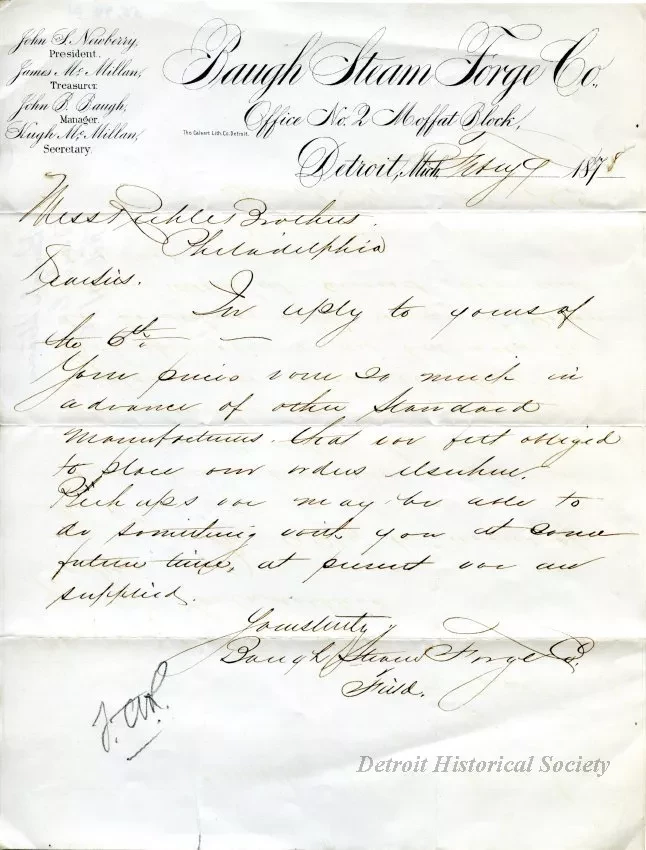 John S. Newberry,
President.
James McMillan,
Treasurer.
John B. Baugh,
Manager.
Hugh McMillan,
Secretary.
Baugh Steam Forge Co.,
Office No. 2 Moffat Block,
The Calvert Lith. Co. Detroit.
Detroit, Mich. Feby 9 1878
Mess Riehle Brothers.
Philadelphia
Dear Sirs.
In reply to yours of
the 6th. —
Your prices were so much in
advance of other Standard
manufacturers. that we felt obliged
to place our orders elsewhere.
Perhaps we may be able to
do something with you at some
future time, at present we are
supplied.
Yours truly
Baugh Steam Forge Co.
Detroit Historical Society